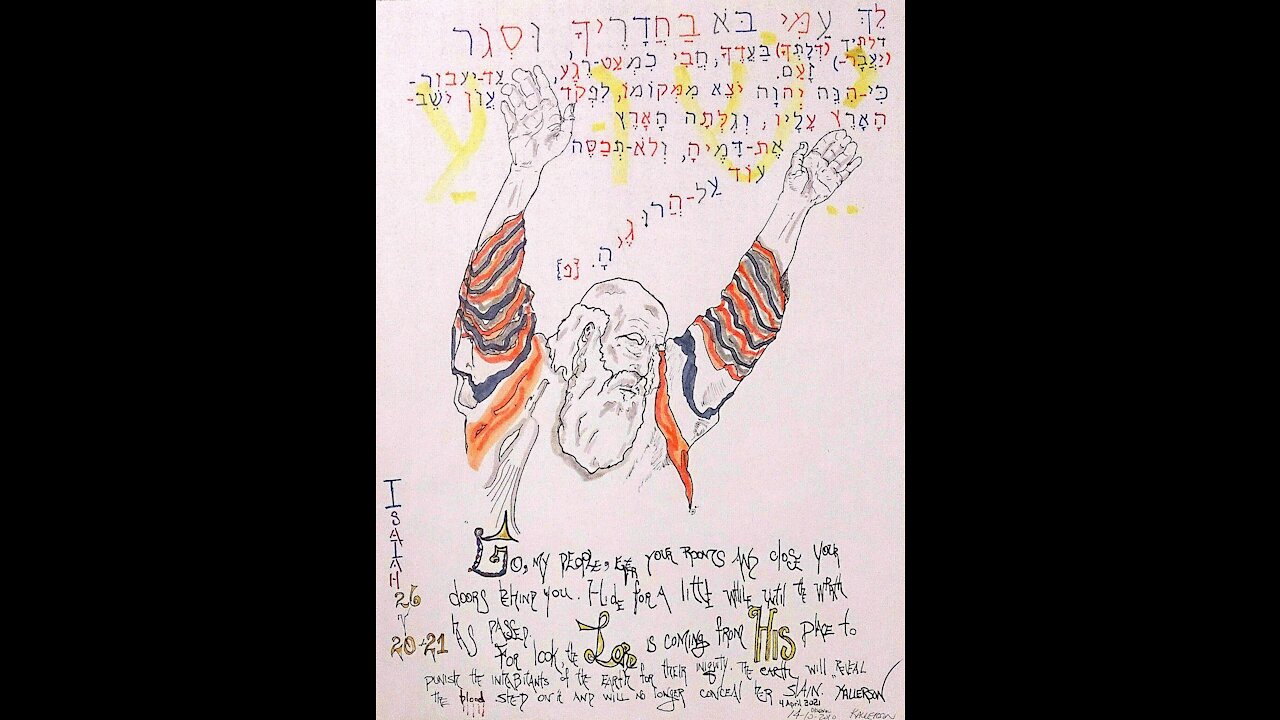 לֵךְ עַמִּי בֹּא בַחֲדָרֶיךָ וּסְגֹר
דלתיך (דְּלָתְךָ) בַּעֲדֶךָ, חֲבִי כִמְעַט-רֶגַע, עַד-יעבור-
(יַעֲבָר-) זָעַם.
כִּי-הִנֵּה יְהוָה יֹצֵא מִמְּקוֹמוֹ, לִפְקֹד עֲוֹן יֹשֵׁב-
הָאָרֶץ עָלָיו; וְגִלְּתָה הָאָרֶץ
אֶת-דָּמֶיהָ, וְלֹא-תְכַסֶּה
עוֹד
עַל-הֲרוּגֶיהָ. {פ}
יֵשׁוּעַ
ISAIAH
26
20-21
Go, my people, enter your rooms and close your
doors behind you. Hide for a little while until the wrath
has passed.
For look, the Lord is coming from His place to
punish the inhabitants of the earth for their iniquity. The earth will reveal
the blood shed on it and will no longer conceal her slain. KALLERSON
4 April 2021
KALLERSON